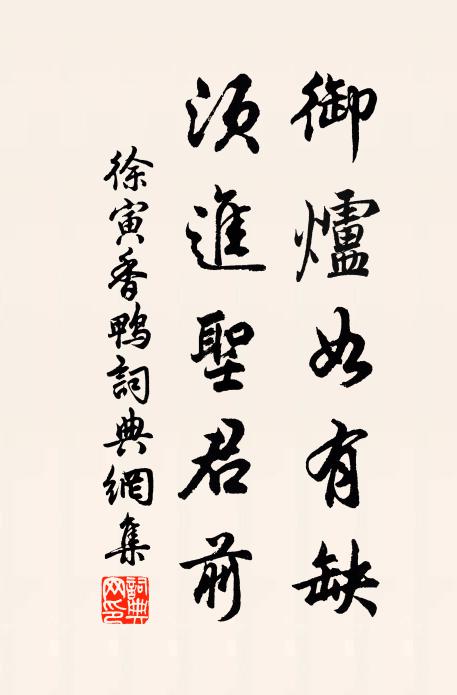 御爐如有缺
須進聖君前
徐寅香鴨詞典網集
詞典網印